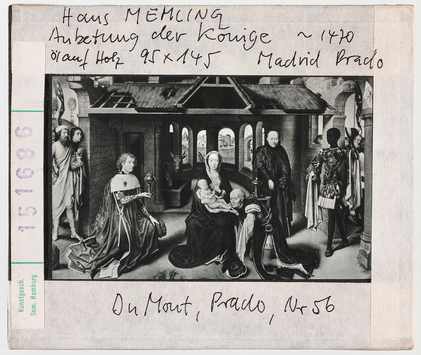 Hans MEMLING
Anbetung der Könige ~ 1470
öl auf Holz 95 x 145 Madrid Prado
151686
Kunstgesch.
Sem. Hamburg
Du Mont, Prado, Nr 56